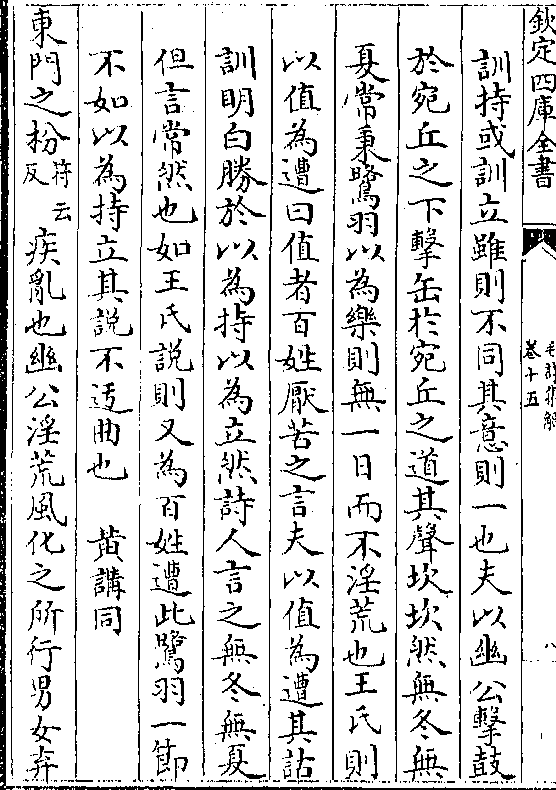 欽定四庫全書
毛詩集解
卷十五
八
訓持或訓立雖則不同其意則一也夫以幽公擊鼓
於宛丘之下擊缶於宛丘之道其聲坎坎然無冬無
夏常秉鷺羽以為樂則無一日而不淫荒也王氏則
以值為遭曰值者百姓厭苦之言夫以值為遭其詁
訓明白勝於以為持以為立然詩人言之無冬無夏
但言常然也如王氏說則又為百姓遭此鷺羽一節
不如以為持立其說不迃曲也 黄講同
東門之枌符云反疾亂也幽公淫荒風化之所行男女弃